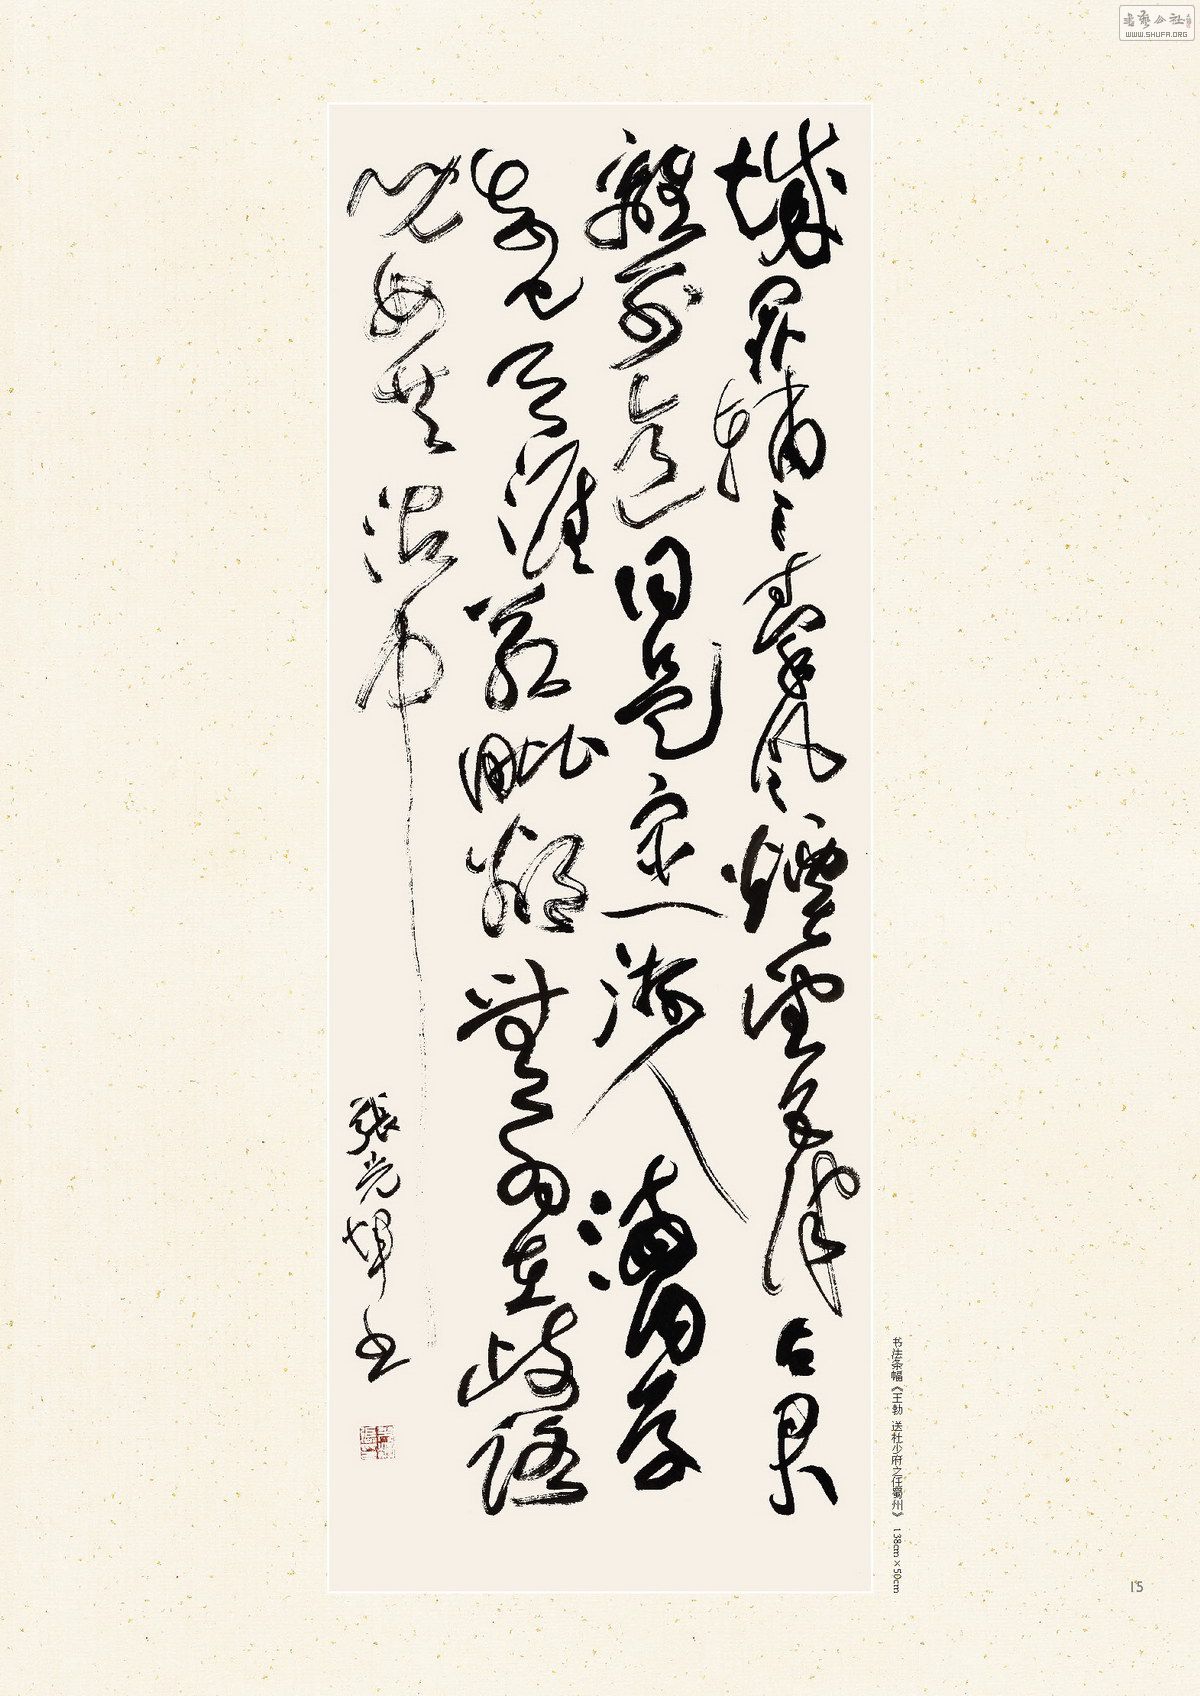 書藝公社
WWW.SHUFA.ORG
城闕輔三秦風煙望五津与君
離別意同是宦游人海内存
知己天涯若毗鄰無為在歧路
兒女共沾巾
張光書
书法条幅《王勃 送杜少府之任蜀州》 138cm×50cm
15